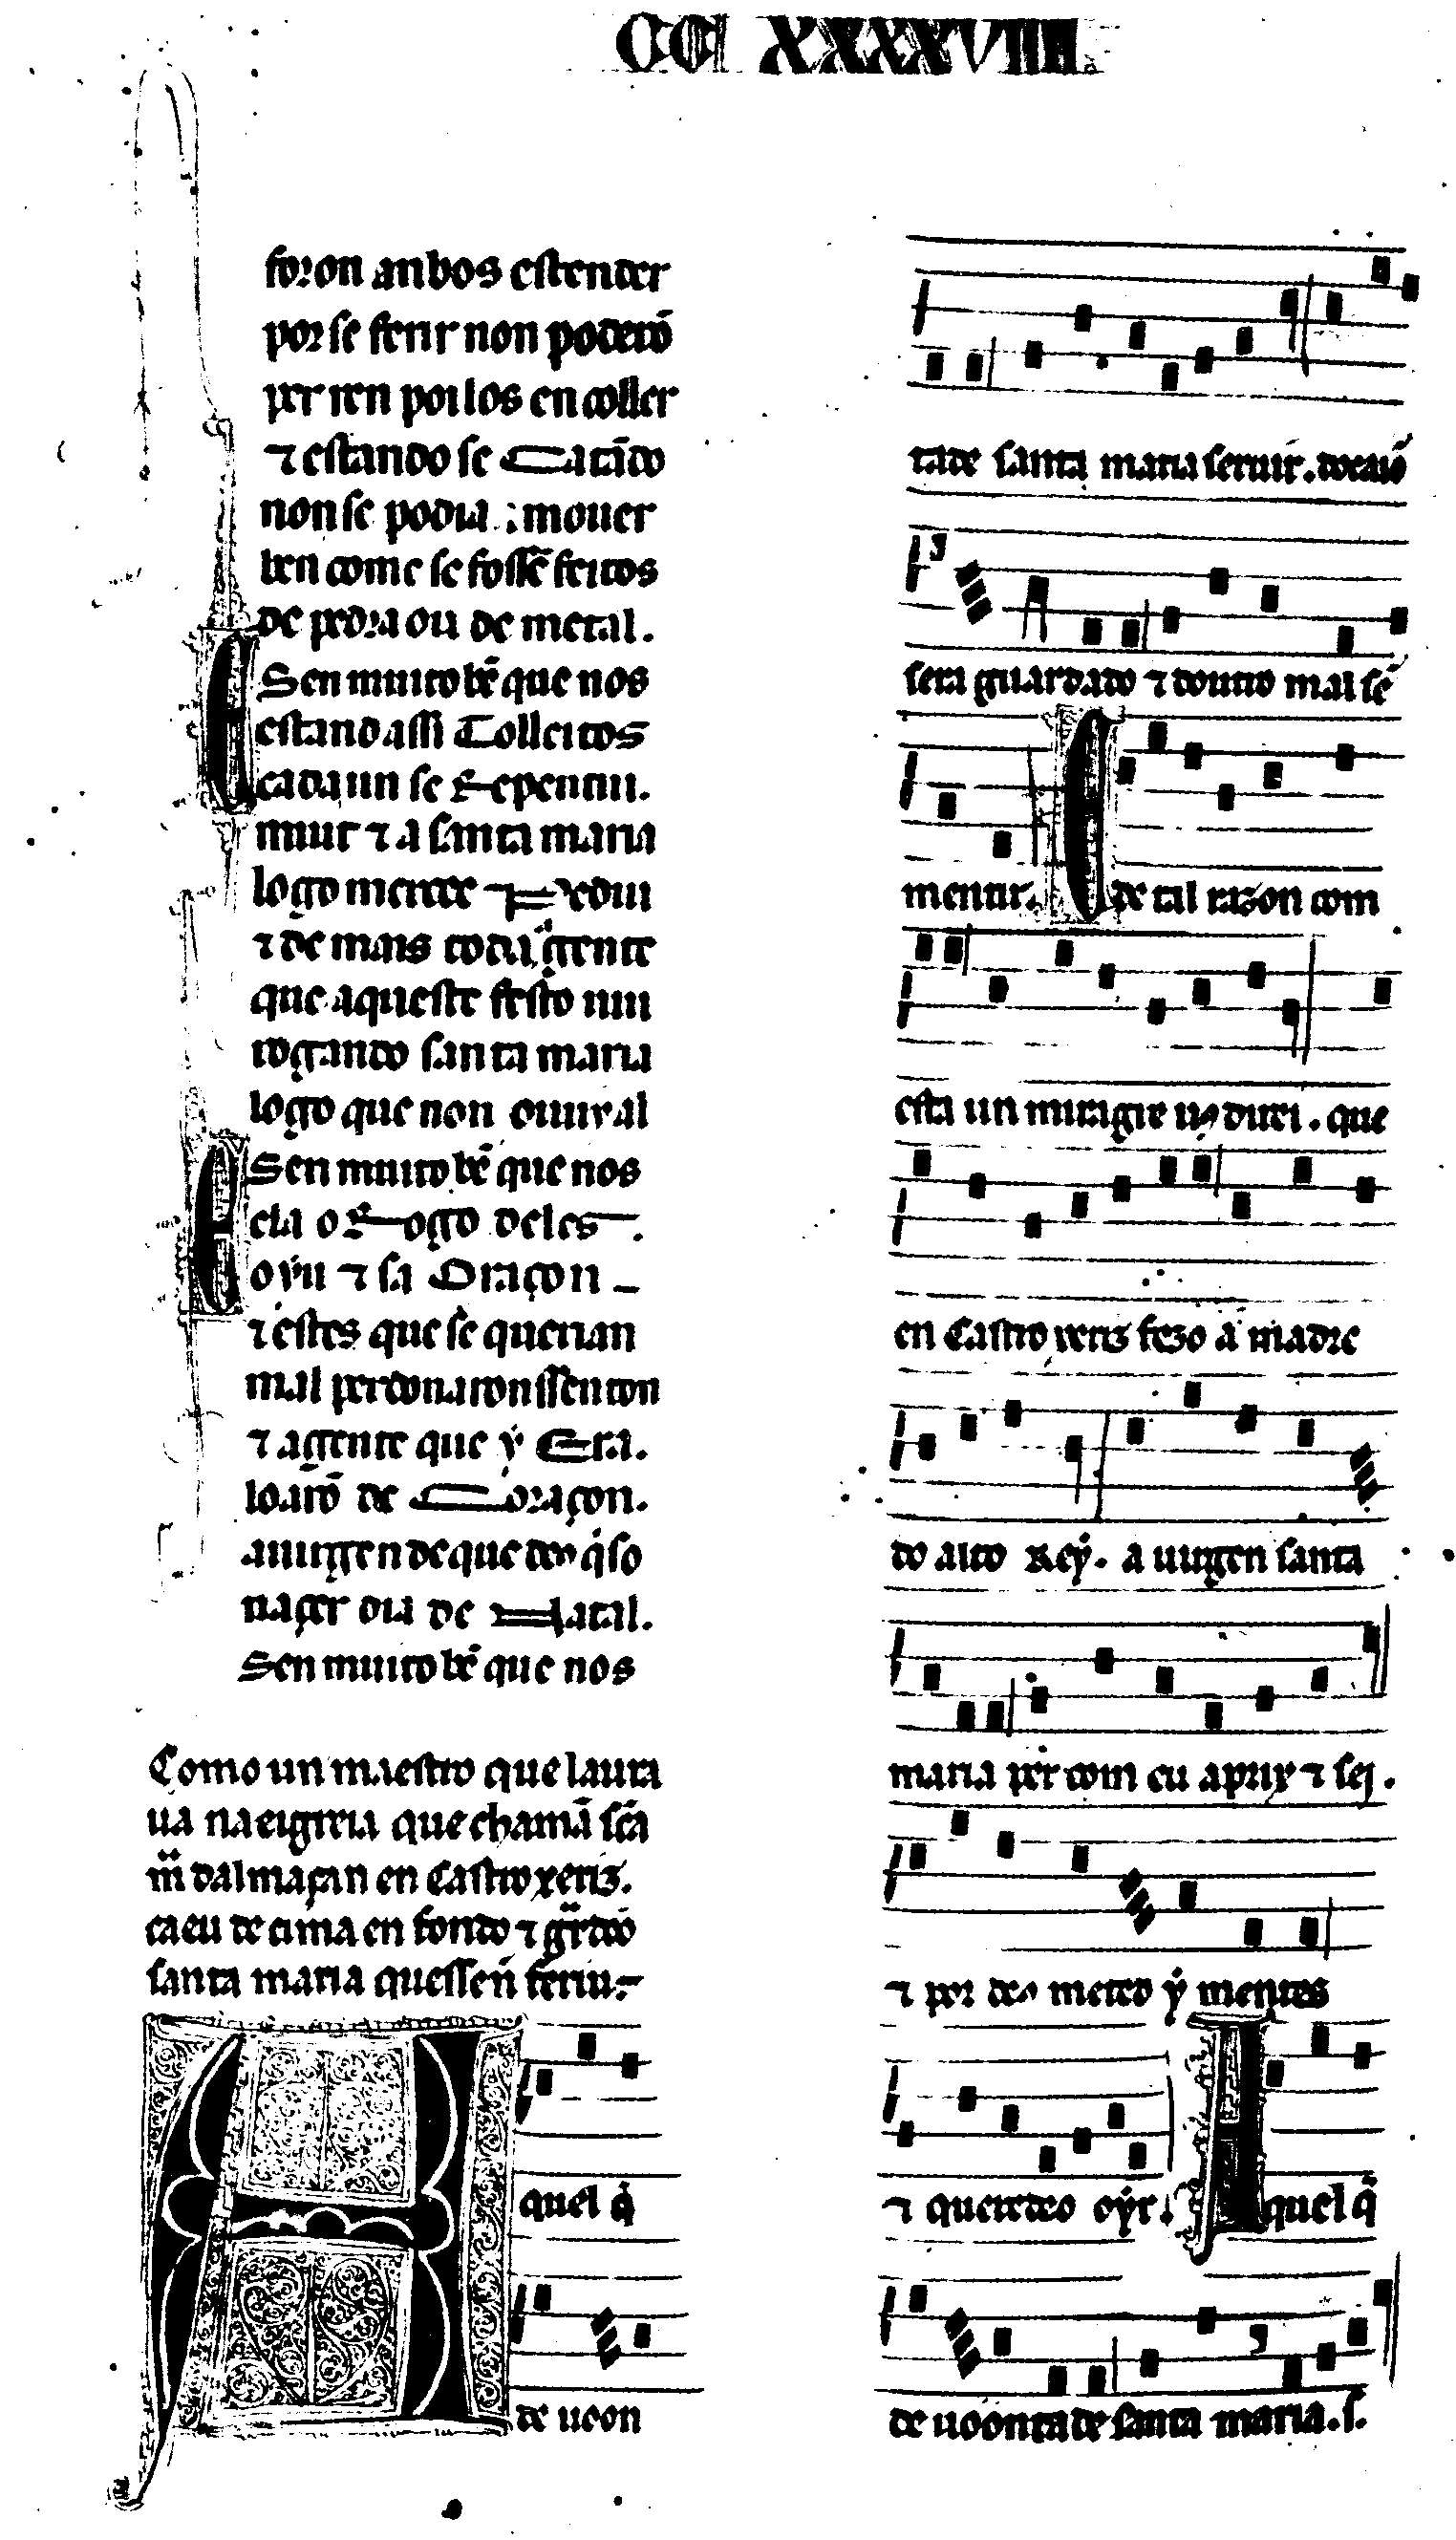 CCXXXXVIIII
foron anbos estender
por se ferir non poderõ
per ren poilos en coller
⁊ estando se Catãdo
non se podia mouer
ben come se fossẽ feitos
de pedra ou de metal.
Sen muito bẽ que nos
E estand assi Tolleitos
cada un se Repentiu.
muit ⁊ a santa maria
logo mercee Pediu
⁊ de mais toda a gente
que aqueste feito uiu
rogando santa maria
logo que non ouuir al
Sen muito bẽ que nos
E ela o Rogo deles.
oyu ⁊ sa Oraçon
⁊ estes que se querian
mal perdonaronssenton
⁊ a gente que y Era.
loarõ de Coraçon.
a uirgen de que deus quiso
naçer dia de Natal.
Sen muito bẽ que nos
Como un maestro que laura
ua na eigreia que chamã scã
mr̃ dalmaçan en Castroxeriz.
caeu de cima en fondo ⁊ gr̃doo
santa maria quessen feriu.
A quel q̃
de uoon
tade santa maria seruir. docaiõ
sera guardado ⁊ doutro mal sẽ
mentir. E de tal razon com
esta un miragre uos direi. que
en Castro xeriz fezo a madre
do alto Rey. a uirgen santa
maria per com eu aprix ⁊ sei.
⁊ por deus meted y mentes
⁊ queredeo oyr. A quel q̃
de uoontade santa maria. s.